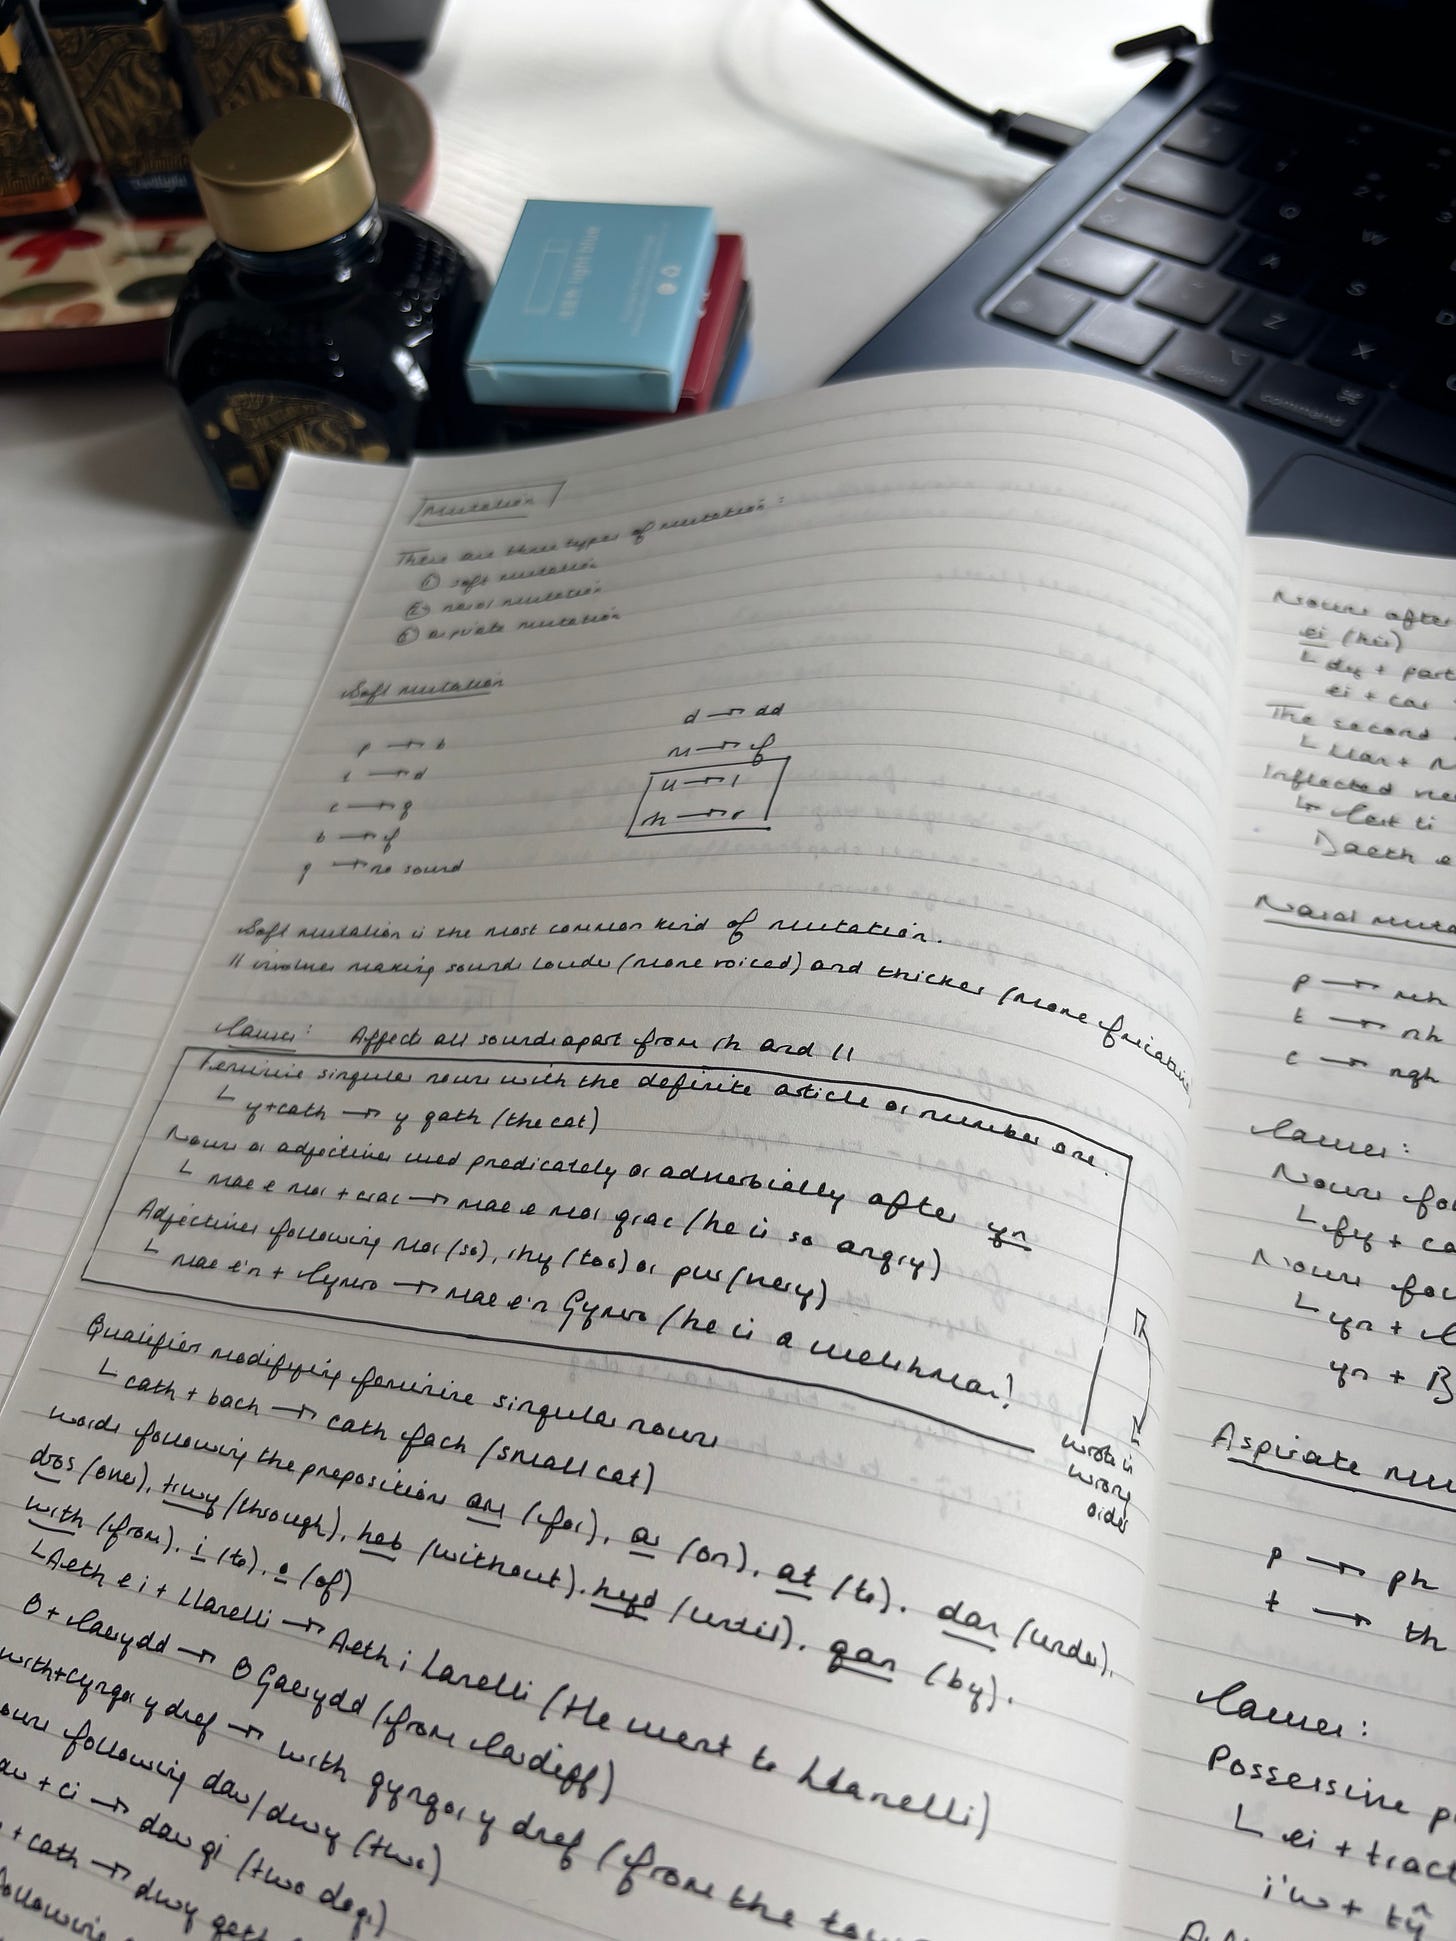 INKS
INKS
Twilight
INKS
light blue
Mutation
There are three types of mutation:
① soft mutation
② nasal mutation
③ aspirate mutation
Soft mutation
p → b
t → d
c → g
b → f
g → no sound
d → dd
m → f
ll → l
rh → r
Soft mutation is the most common kind of mutation.
It involves making sounds louder (more voiced) and thicker (more fricative)
Causes: Affects all sounds apart from rh and ll
Feminine singular nouns with the definite article or number one.
↳ y + cath → y gath (the cat)
Nouns or adjectives used predicately or adverbially after yn
↳ mae e mor + crac → mae e mor grac (he is so angry)
Adjectives following mor (so), rhy (too) or pur (very)
↳ mae e'n + Cymro → mae e'n Gymro (he is a welshman)
wrote in
wrong
order
Qualifiers modifying feminine singular nouns
↳ cath + bach → cath fach (small cat)
words following the preposition am (for), ar (on), at (to), dan (under),
dros (over), trwy (through), heb (without), hyd (until), gan (by),
wrth (from), i (to), o (of)
↳ Aeth e i + Llanelli → Aeth i Lanelli (He went to Llanelli)
O + Caerydd → O Gaerydd (from Cardiff)
wrth + cyngor y dref → wrth gyngor y dref (from the
following dau/dwy (two)
+ ci → dau gi (two dogs)
+ cath → dwy gath
following
Nouns after
ei (his)
↳ dy + part
ei + car
The second
↳ Llan +
Inflected
↳
Daeth e
Nasal
p → mh
t → nh
c → ngh
Causes:
Nouns
↳ fy + ca
Nouns
↳ yn + C
yn + B
Aspirate
p → ph
t → th
Causes:
Possessive p
↳ ei + tract
i'w + tŷ
A
Q
W
A
S
D
Z
X
option
command
⌘